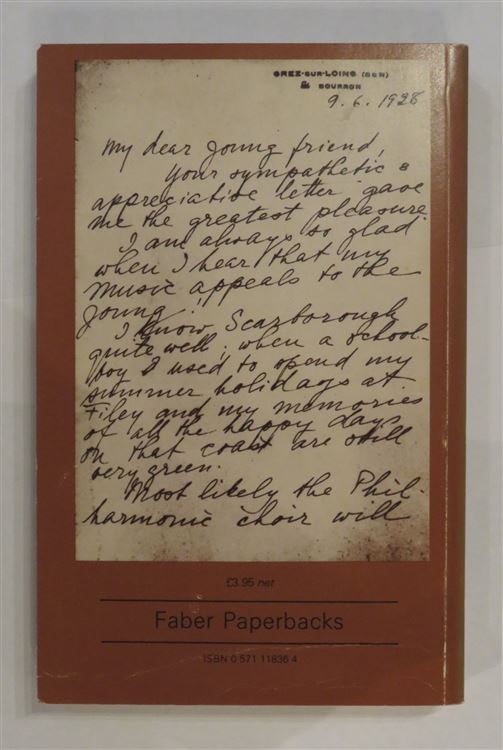 GREZ-SUR-LOING (S&M)
BOURRON
9.6.1928
My dear young friend,
Your sympathetic &
appreciative letter gave
me the greatest pleasure.
I am always so glad
when I hear that my
music appeals to the
young!
I know Scarborough
quite well; when a school-
boy I used to spend my
summer holidays at
Filey and my memories
of all the happy days
on that coast are still
very green.
Most likely the Phil-
harmonic choir will
£3.95 net
Faber Paperbacks
ISBN 0 571 11836 4